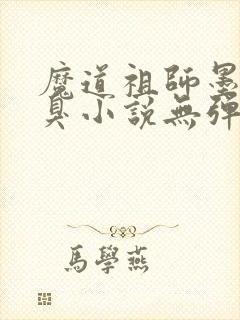 魔道祖師墨
臭小說無彈
馬學燕